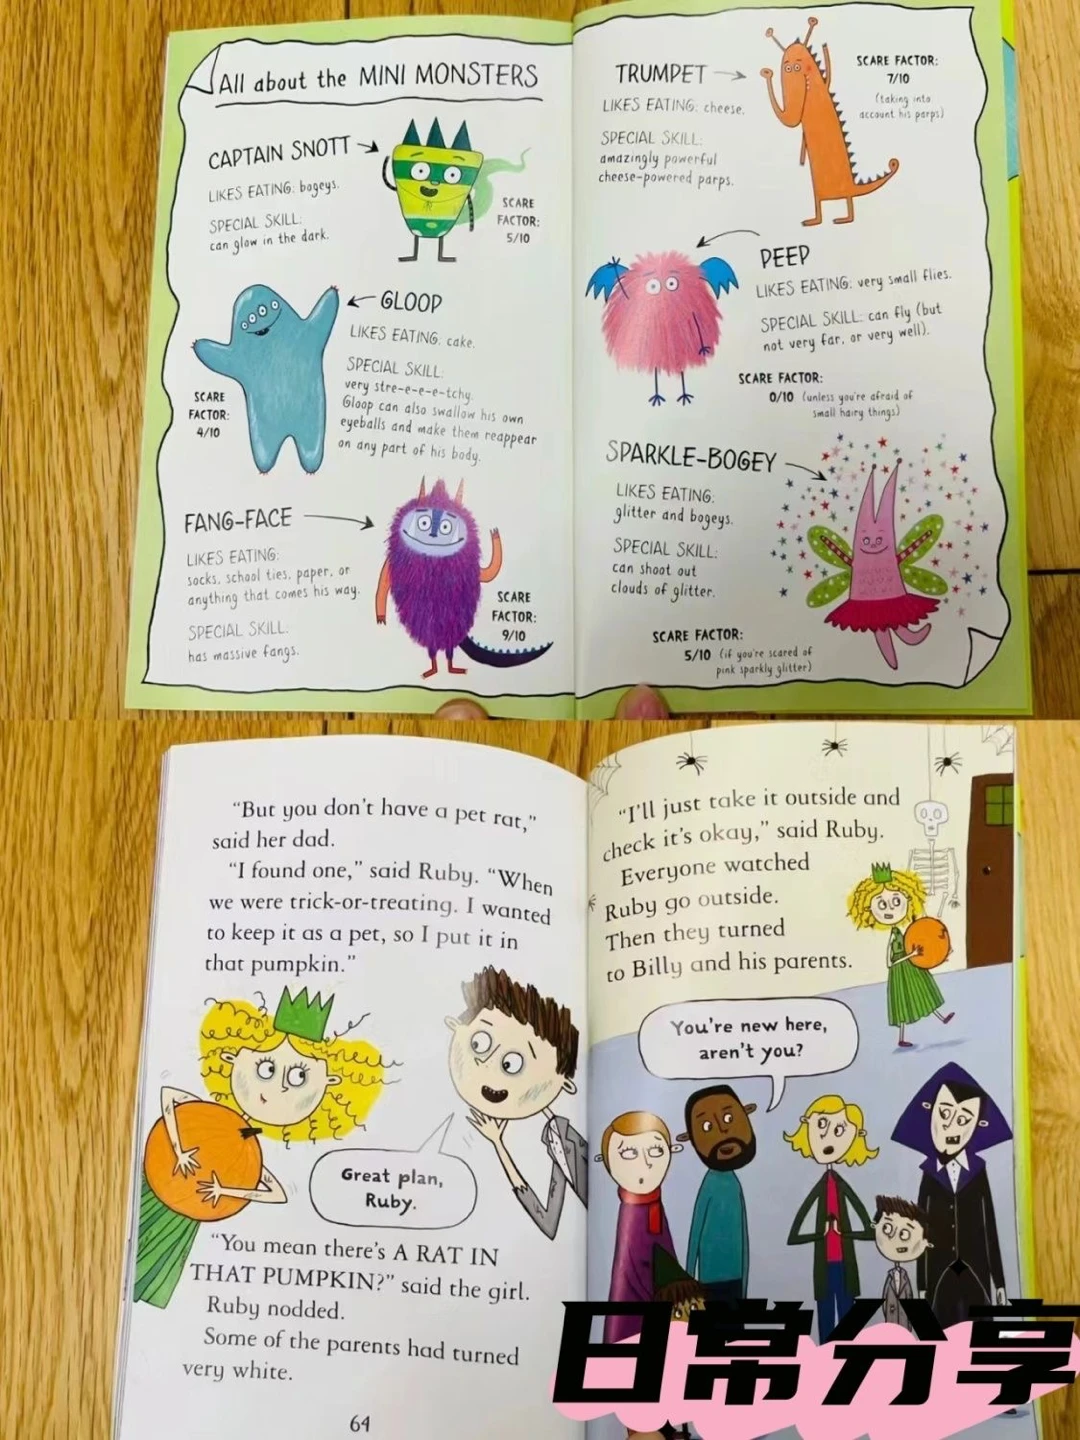 All about the MINI MONSTERS
CAPTAIN SNOTT
LIKES EATING: bogeys.
SPECIAL SKILL:
can glow in the dark.
SCARE
FACTOR:
5/10
GLOOP
LIKES EATING: cake.
SPECIAL SKILL:
very stre-e-e-e-tchy.
Gloop can also swallow his own
eyeballs and make them reappear
on any part of his body.
SCARE
FACTOR:
4/10
FANG-FACE
LIKES EATING:
socks, school ties, paper, or
anything that comes his way.
SPECIAL SKILL:
has massive fangs.
SCARE
FACTOR:
9/10
TRUMPET
LIKES EATING: cheese.
SPECIAL SKILL:
amazingly powerful
cheese-powered parps.
SCARE FACTOR:
7/10
(taking into
account his parps)
PEEP
LIKES EATING: very small flies.
SPECIAL SKILL: can fly (but
not very far, or very well).
SCARE FACTOR:
0/10 (unless you're afraid of
small hairy things)
SPARKLE-BOGEY
LIKES EATING:
glitter and bogeys.
SPECIAL SKILL:
can shoot out
clouds of glitter.
SCARE FACTOR:
5/10 (if you're scared of
pink sparkly glitter)
"But you don't have a pet rat,"
said her dad.
"I found one," said Ruby. "When
we were trick-or-treating. I wanted
to keep it as a pet, so I put it in
that pumpkin."
Great plan,
Ruby.
"You mean there's A RAT IN
THAT PUMPKIN?" said the girl.
Ruby nodded.
Some of the parents had turned
very white.
64
"I'll just take it outside and
check it's okay," said Ruby.
Everyone watched
Ruby go outside.
Then they turned
to Billy and his parents.
You're new here,
aren't you?
日常分享